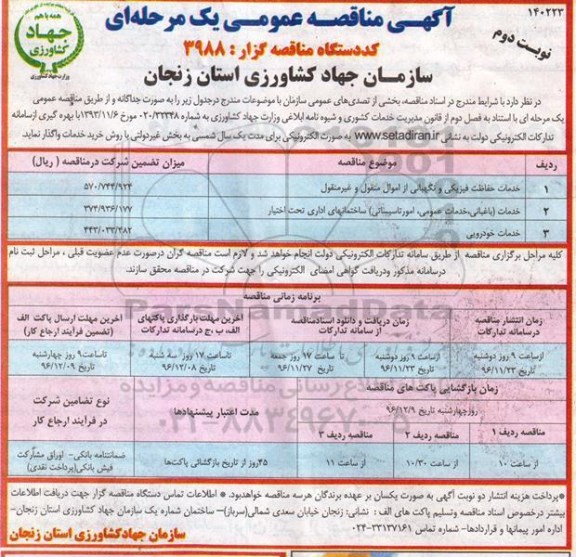 ۱۴۰۲۲۳
همه با هم
جهاد
کشاورزی
وزارت جهاد کشاورزی
آگهی مناقصه عمومی یک مرحله‌ای
نوبت دوم
کد دستگاه مناقصه گزار : ۳۹۸۸
سازمان جهاد کشاورزی استان زنجان
در نظر دارد با شرایط مندرج در اسناد مناقصه، بخشی از تصدی‌های عمومی سازمان با موضوعات مندرج درجدول زیر را به صورت جداگانه و از طریق مناقصه عمومی
یک مرحله ای با استناد به فصل دوم از قانون مدیریت خدمات کشوری و شیوه نامه ابلاغی وزارت جهاد کشاورزی به شماره ۰۲۰/۲۲۳۳۸ مورخ ۱۳۹۳/۱۱/۶ با بهره گیری ازسامانه
تدارکات الکترونیکی دولت به نشانی www.setadiran.ir به صورت الکترونیکی برای مدت یک سال شمسی به بخش غیردولتی با روش خرید خدمات واگذار نماید.
ردیف موضوع مناقصه میزان تضمین شرکت درمناقصه ( ریال)
۱ خدمات حفاظت فیزیکی و نگهبانی از اموال منقول و غیرمنقول ۵۷۰/۷۴۴/۹۲۴
۲ خدمات (باغبانی،خدمات عمومی، امورتاسیساتی) ساختمانهای اداری تحت اختیار ۳۷۴/۹۳۶/۱۷۷
۳ خدمات خودرویی ۴۴۳/۰۳۳/۲۸۲
کلیه مراحل برگزاری مناقصه از طریق سامانه تدارکات الکترونیکی دولت انجام خواهد شد و لازم است مناقصه گران درصورت عدم عضویت قبلی ، مراحل ثبت نام
درسامانه مذکور ودریافت گواهی امضای الکترونیکی را جهت شرکت در مناقصه محقق سازند.
برنامه زمانی مناقصه
زمان انتشار مناقصه درسامانه تدارکات زمان دریافت و دانلود اسنادمناقصه از سامانه تدارکات آخرین مهلت بارگذاری پاکتهای الف، ب ،ج درسامانه تدارکات آخرین مهلت ارسال پاکت الف (تضمین فرآیند ارجاع کار)
ازساعت ۹ روز دوشنبه تاریخ ۹۶/۱۱/۲۳ ازساعت ۹ روز دوشنبه تاریخ ۹۶/۱۱/۲۳ تا ساعت ۱۷ روز جمعه تاریخ ۹۶/۱۱/۲۷ تاساعت ۱۷ روز سه شنبه تاریخ ۹۶/۱۲/۰۸ تاساعت ۹ روز چهارشنبه تاریخ ۹۶/۱۲/۰۹
زمان بازگشایی پاکت های مناقصه مدت اعتبار پیشنهادها نوع تضامین شرکت در فرآیند ارجاع کار
روزچهارشنبه تاریخ ۹۶/۱۲/۹
مناقصه ردیف ۱ مناقصه ردیف ۲ مناقصه ردیف ۳
از ساعت ۱۰ از ساعت ۱۰/۳۰ از ساعت ۱۱ ۴۵روز از تاریخ بازگشائی پاکت‌ها ضمانتنامه بانکی- اوراق مشارکت
فیش بانکی(پرداخت نقدی)
●پرداخت هزینه انتشار دو نوبت آگهی به صورت یکسان بر عهده برندگان هرسه مناقصه خواهدبود. ● اطلاعات تماس دستگاه مناقصه گزار جهت دریافت اطلاعات
بیشتر درخصوص اسناد مناقصه وتسلیم پاکت های الف : نشانی: زنجان خیابان سعدی شمالی(سرباز)– ساختمان شماره یک سازمان جهاد کشاورزی استان زنجان-
اداره امور پیمانها و قراردادها- شماره تماس ۳۳۱۳۷۱۶۱-۰۲۴
سازمان جهادکشاورزی استان زنجان